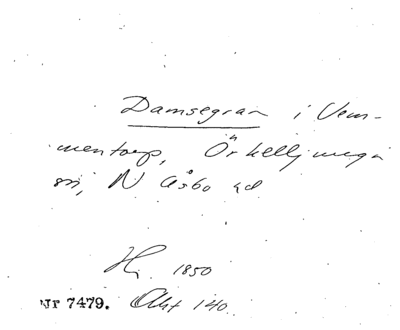 Damsegran i Vem-
mentorp, Örkelljunga
sn, N Åsbo hd
Hi 1850
Nr 7479. Akt 140